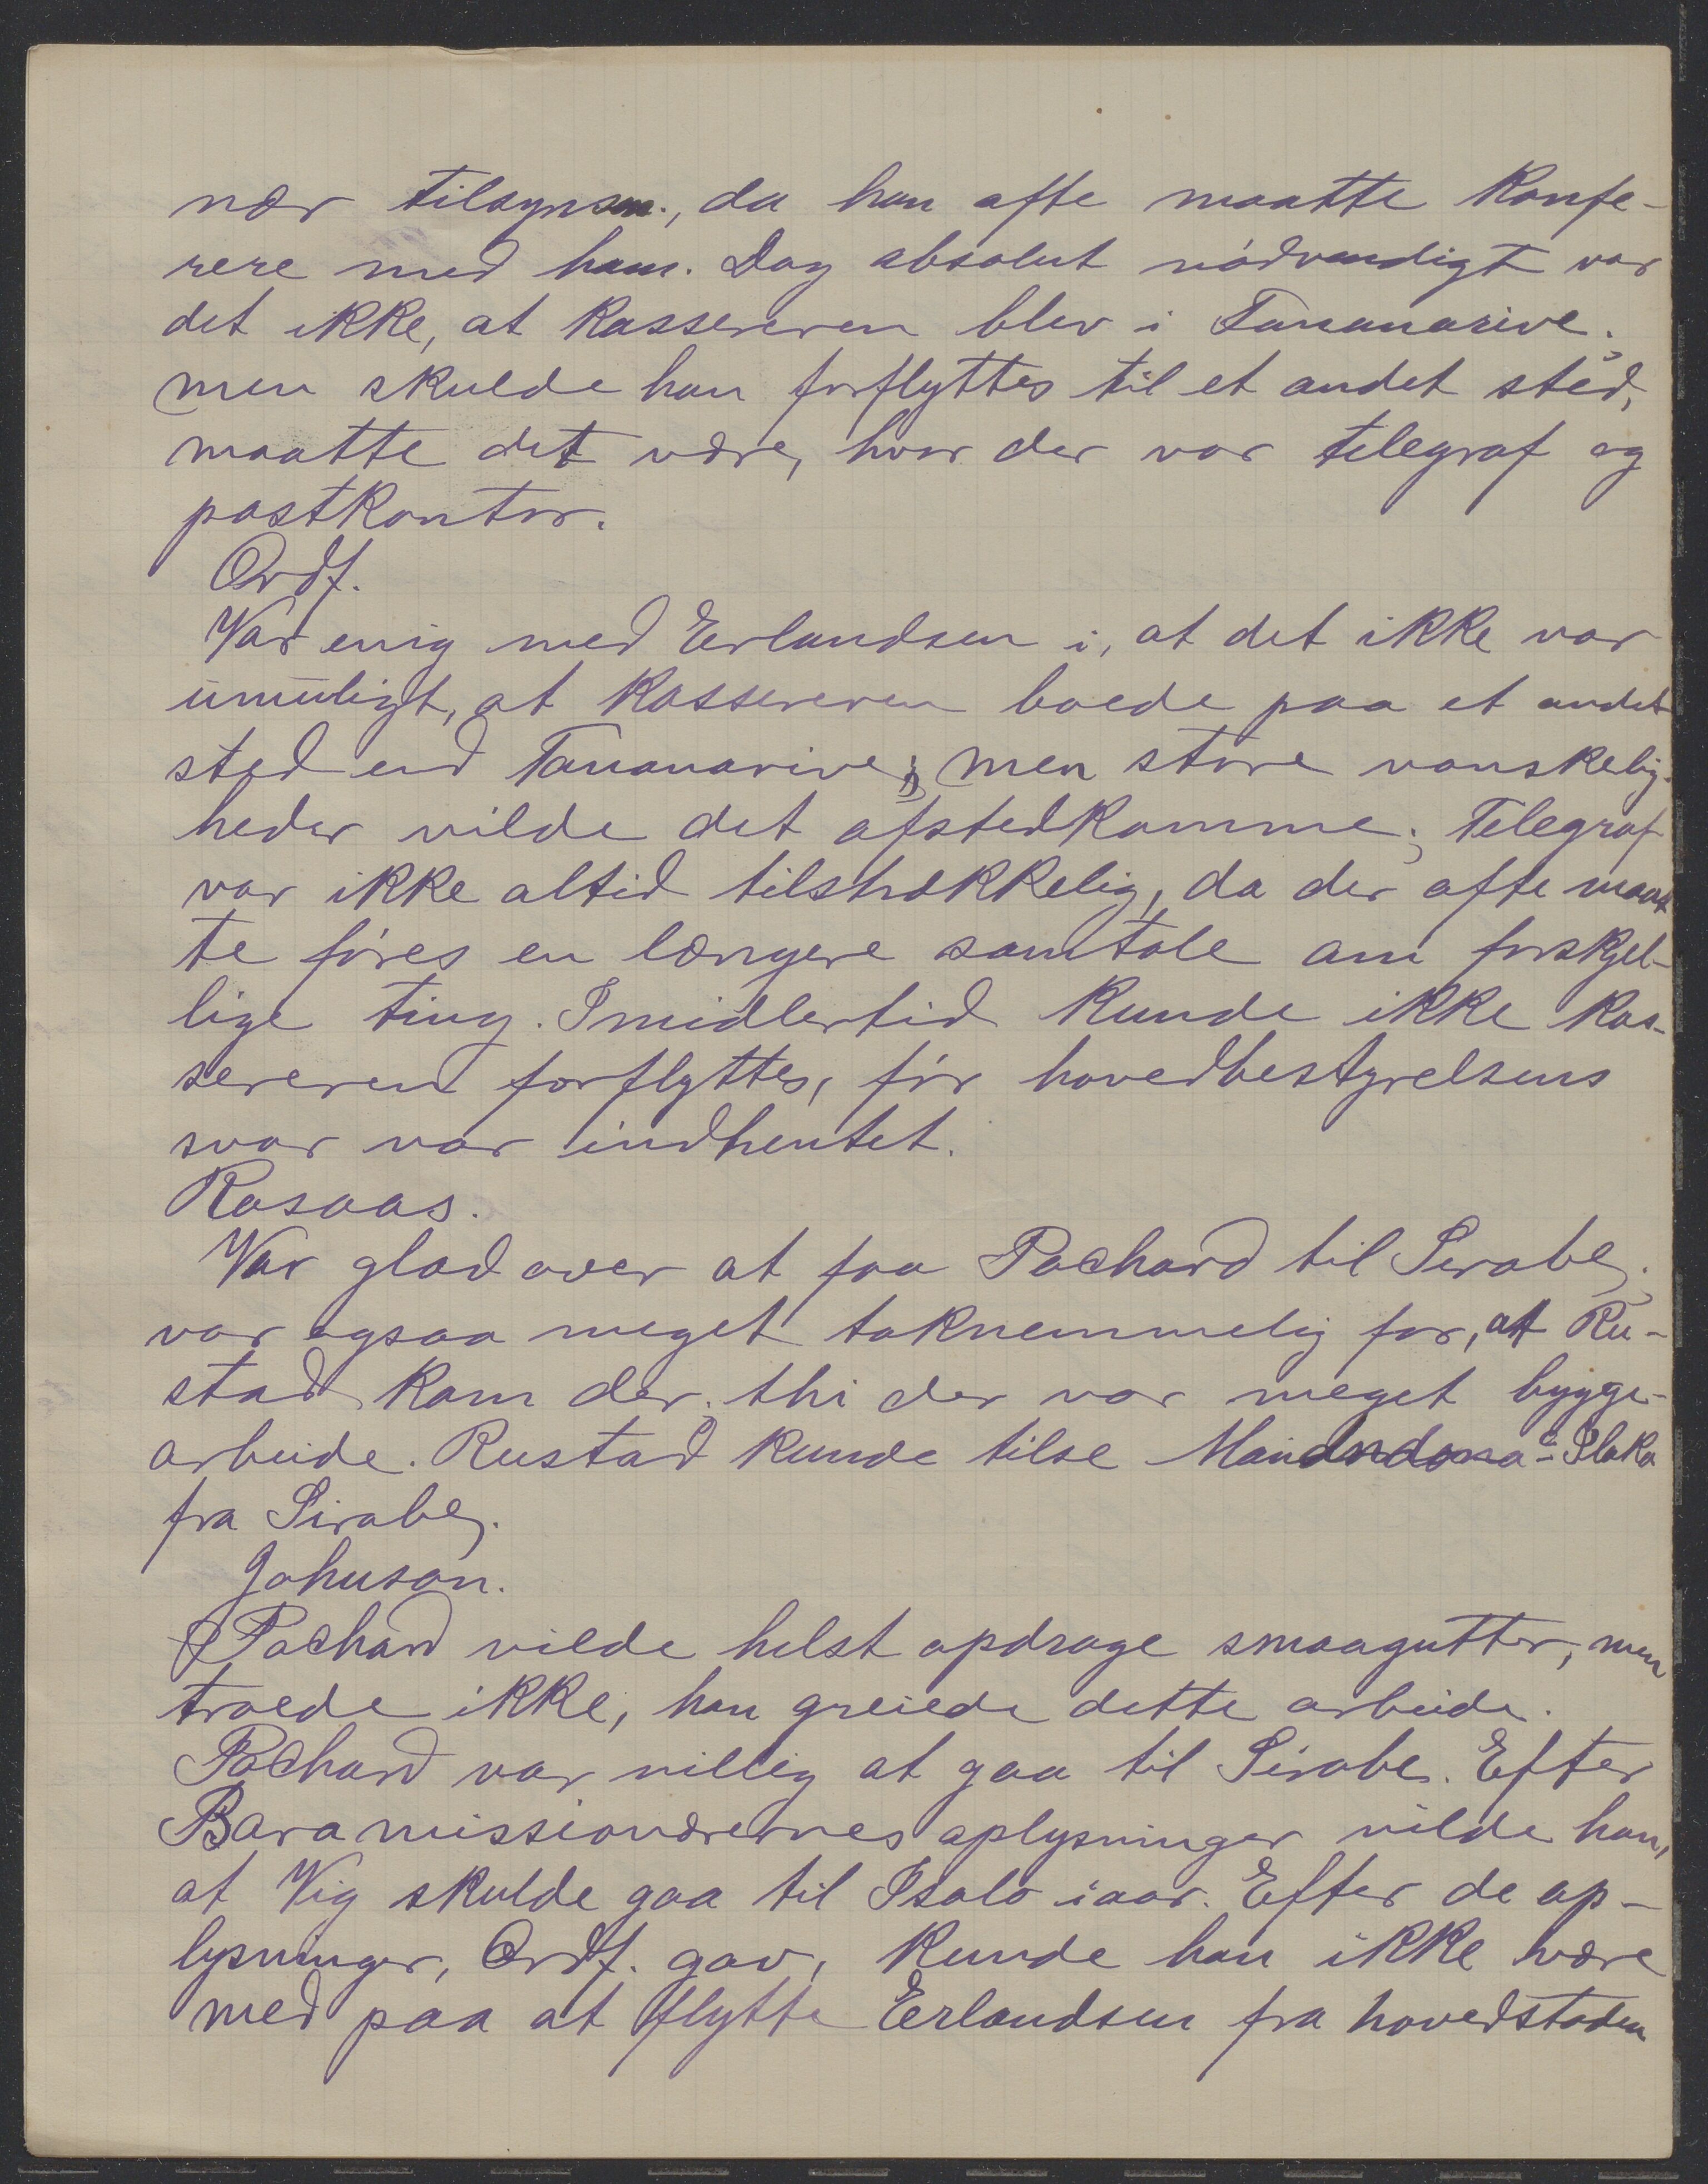 nær tilsynsm., da han ofte maatte konfe-
rere med ham. Dog absolut nødvendigt var
det ikke, at kassereren blev i Tananarive;
men skulde han forflyttes til et andet sted,
maatte det være, hvor der var telegraf og
postkontor.
Ordf.
Var enig med Erlandsen i, at det ikke var
umuligt, at kassereren boede paa et andet
sted end Tananarive; men store vanskelig-
heder vilde det afstedkomme; Telegraf
var ikke altid tilstrækkelig, da der ofte maat
te føres en længere samtale om forskjel-
lige ting. Imidlertid kunde ikke kas-
sereren forflyttes, før hovedbestyrelsens
svar var indhentet.
Rosaas.
Var glad over at faa Pochard til Sirabe;
var ogsaa meget taknemmelig for, at Ru-
stad kom der; thi der var meget bygge-
arbeide. Rustad kunde tilse Manandona - Ilaka
fra Sirabe.
Johnson.
Pochard vilde helst opdrage smaagutter, men
troede ikke, han greiede dette arbeide.
Pochard var villig at gaa til Sirabe. Efter
Bara missionærernes oplysninger vilde han,
at Vig skulde gaa til Isalo iaar. Efter de op-
lysninger, Ordf. gav, kunde han ikke være
med paa at flytte Erlandsen fra hovedstaden